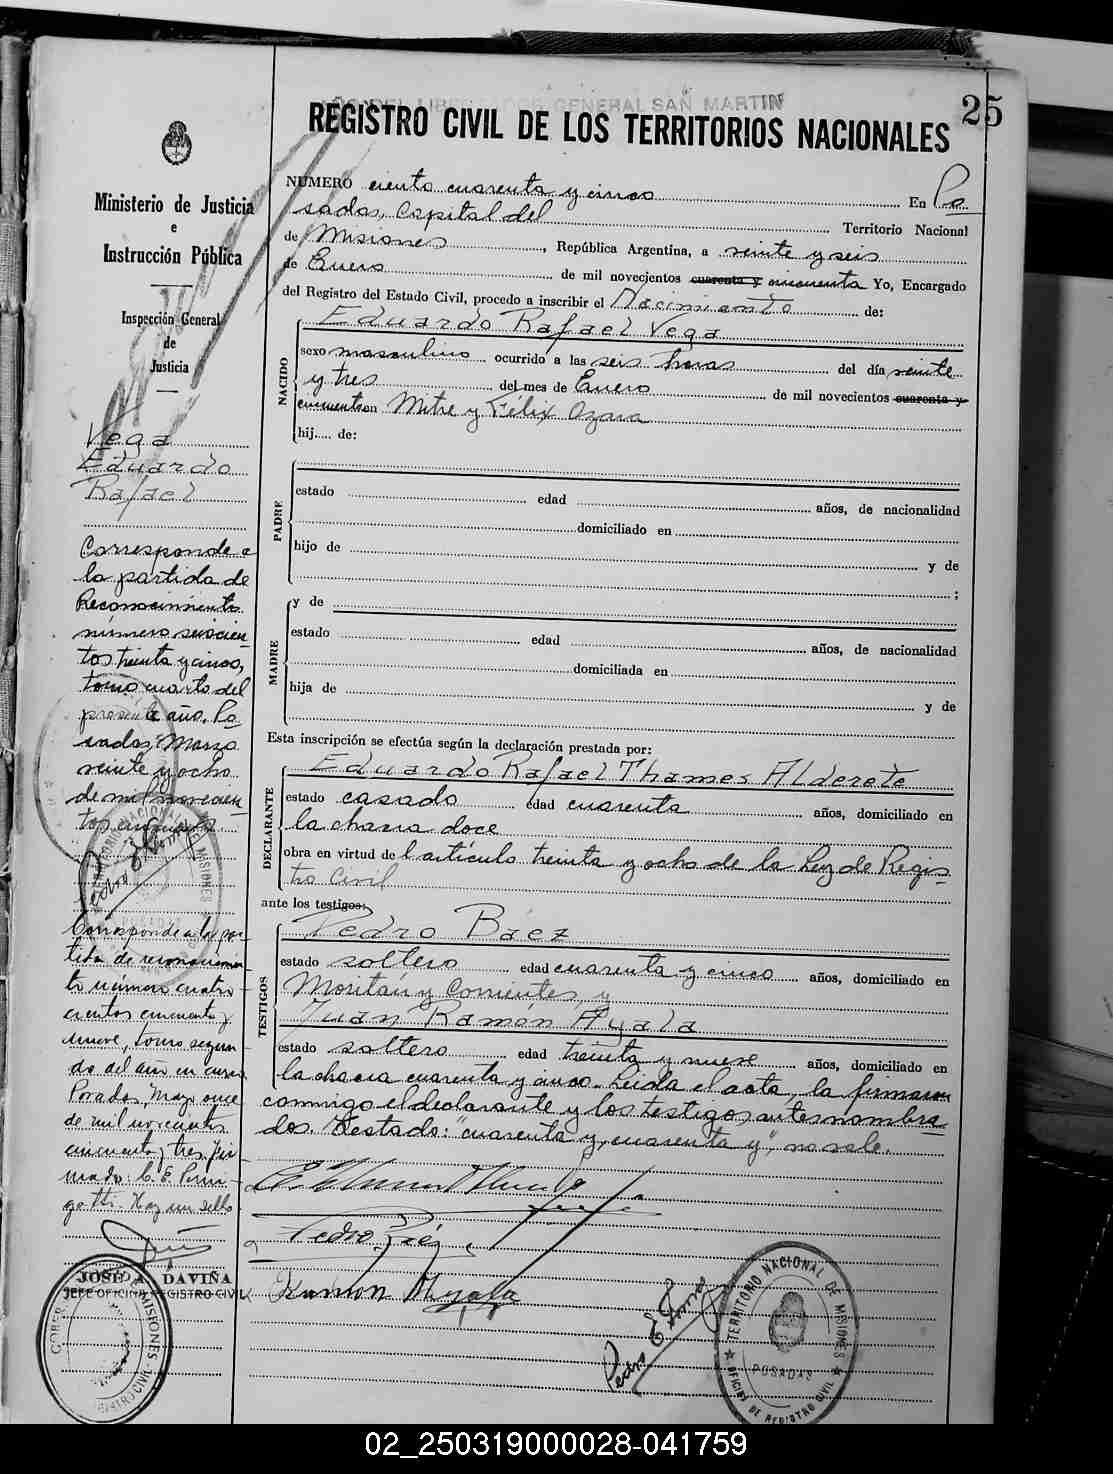 AÑO DEL LIBERTADOR GENERAL SAN MARTIN
25
REGISTRO CIVIL DE LOS TERRITORIOS NACIONALES
Ministerio de Justicia
e
Instrucción Pública
Inspección General
de
Justicia
Vega
Eduardo
Rafael
Corresponde a
la partida de
Reconocimiento
número seiscien
tos treinta y cinco,
tomo cuarto del
presente año. Po
sadas, Marzo
veinte y ocho
de mil novecien
tos cincuenta
Corresponde a la par-
tida de reconocimien
to número cuatro
cientos cincuenta y
nueve, tomo segun
do del año en curso
Posadas, Mayo once
de mil novecientos
cincuenta y tres. Fir
mado: C. E. 
Hay un sello
JOSE A. DAVIÑA
JEFE OFICINA REGISTRO CIVIL
NUMERO ciento cuarenta y cinco En Po
sadas, Capital del Territorio Nacional
de Misiones, República Argentina, a veinte y seis
de Enero de mil novecientos cuarenta y cincuenta Yo, Encargado
del Registro del Estado Civil, procedo a inscribir el Nacimiento de:
NACIDO
Eduardo Rafael Vega
sexo masculino ocurrido a las seis horas del día veinte
y tres del mes de Enero de mil novecientos cuarenta y
cincuenta en Mitre y Félix Azara
hij.... de:
PADRE
estado edad años, de nacionalidad
domiciliado en
hijo de y de
;
MADRE
y de
estado edad años, de nacionalidad
domiciliada en
hija de y de
Esta inscripción se efectúa según la declaración prestada por:
DECLARANTE
Eduardo Rafael Thames Alderete
estado casado edad cuarenta años, domiciliado en
la chacra doce
obra en virtud del artículo treinta y ocho de la Ley de Regis-
tro Civil
ante los testigos:
TESTIGOS
Pedro Báez
estado soltero edad cuarenta y cinco años, domiciliado en
y Corrientes, y
Juan Ramón Ayala
estado soltero edad treinta y nueve años, domiciliado en
la chacra cuarenta y cinco. Leída el acta, la firmaron
conmigo el declarante y los testigos antes nombra
dos. Testado: "cuarenta y, cuarenta y", no vale.
Pedro Báez
Ramon Ayala
TERRITORIO NACIONAL DE MISIONES
POSADAS
OFICINA DE REGISTRO CIVIL
02_250319000028-041759